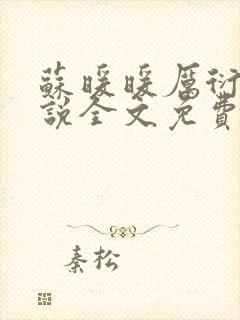 蘇暖暖厲衍
說全文免費
秦松